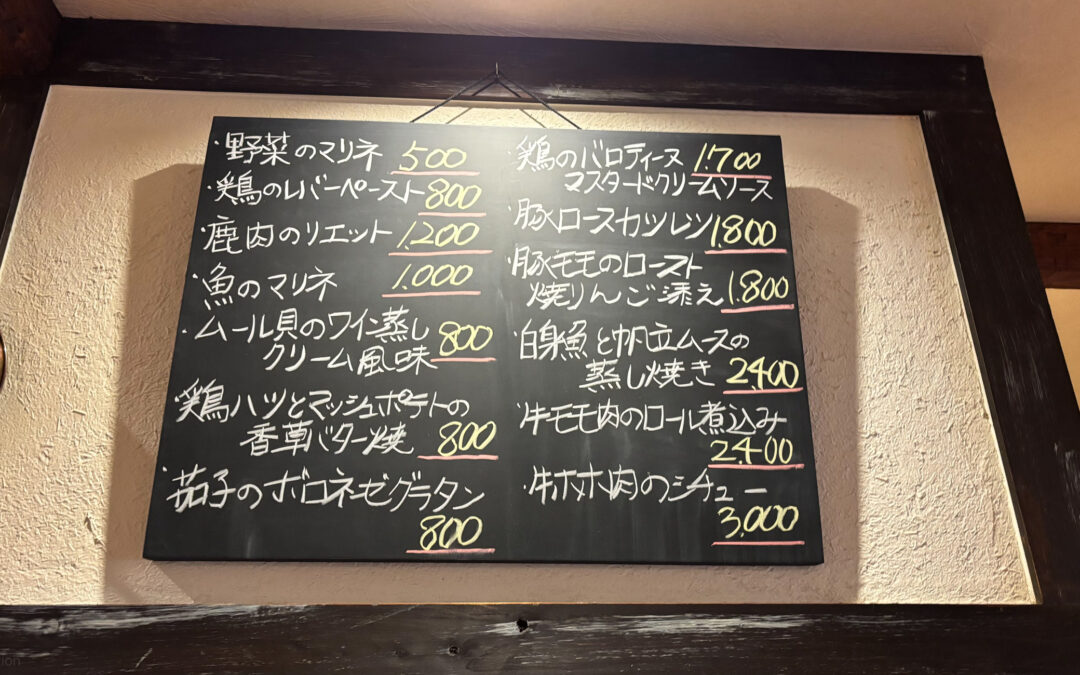 ・野菜のマリネ 500
・鶏のレバーペースト 800
・鹿肉のリエット 1.200
・魚のマリネ 1.000
・ムール貝のワイン蒸し
クリーム風味 800
・鶏ハツとマッシュポテトの
香草バター焼 800
・茄子のボロネーゼグラタン
800
・鶏のバロティーヌ 1.700
マスタードクリームソース
・豚ロースカツレツ 1.800
・豚モモのロースト
焼りんご添え 1.800
・白身魚と帆立ムースの
蒸し焼き 2.400
・牛モモ肉のロール煮込み
2.400
・牛ホホ肉のシチュー
3.000